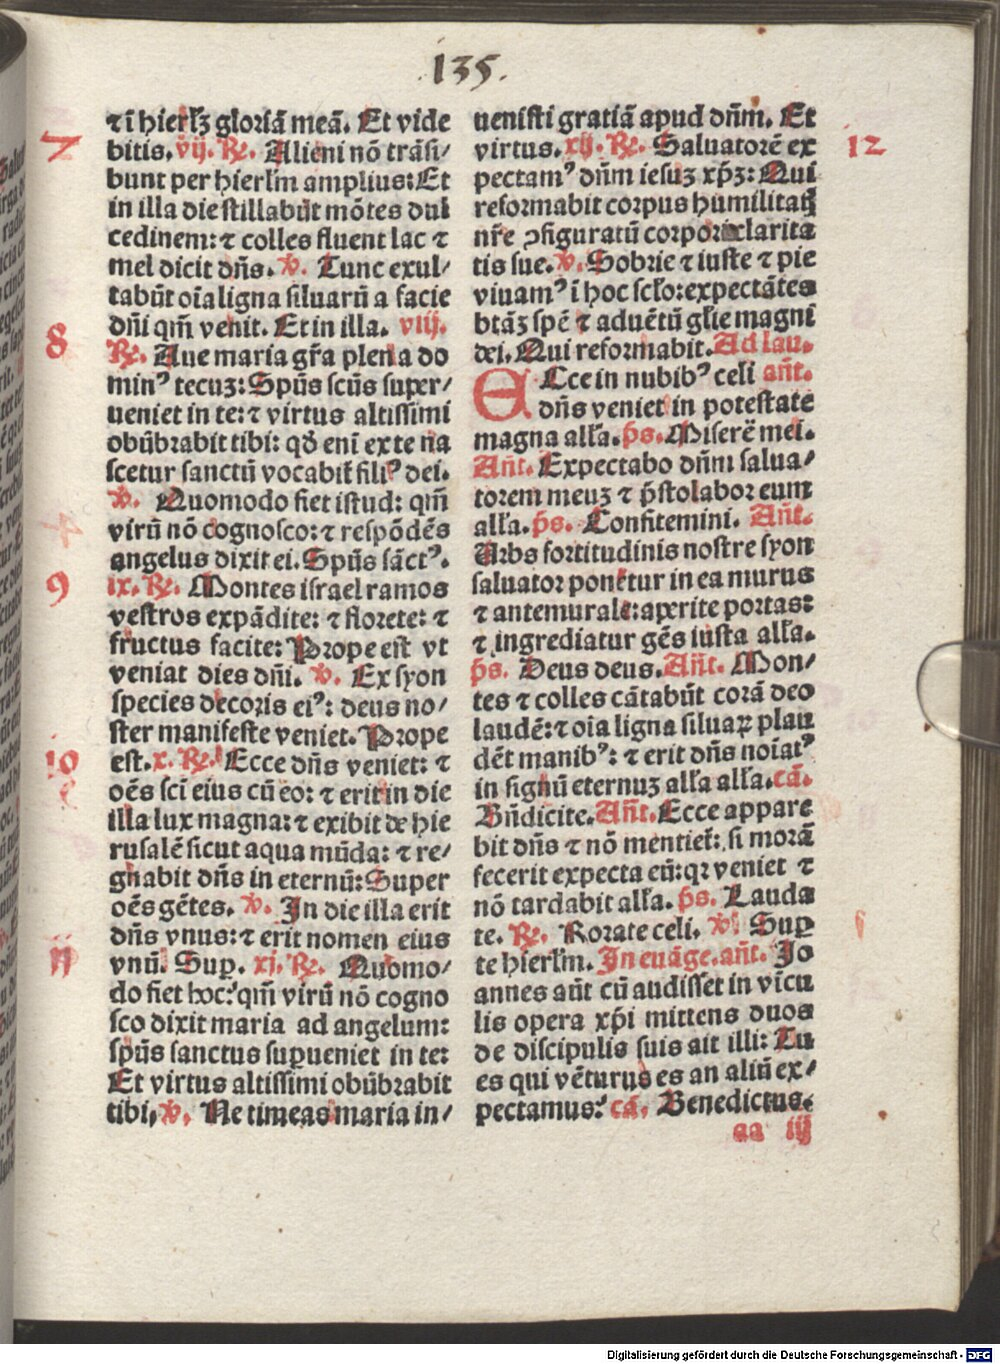 .135.
⁊ ī hierłʒ gloriã meã. Et vide
7
bitis. vij. ℟. Alieni nõ trãsi⸗
bunt per hierłm amplius: Et
in illa die stillabũt mõtes dul
cedinem: ⁊ colles fluent lac ⁊
mel dicit dñs. ℣. Tunc exul⸗
tabũt oĩa ligna siluarũ a facie
dñi qm̃ venit. Et in illa. viij.
8
℟. Aue maria gr̃a plena do
minꝰ tecuʒ: Spũs scũs super⸗
ueniet in te: ⁊ virtus altissimi
obũbrabit tibi: qđ enĩ ex te na
scetur sanctũ vocabit̃ filiꝰ dei.
℣. Quomodo fiet istud: qm̃
virũ nõ cognosco: ⁊ respõdẽs
4
angelus dixit ei. Spũs sãctꝰ.
9
ix. ℟. Montes israel ramos
vestros expãdite: ⁊ florete: ⁊
fructus facite: Prope est vt
veniat dies dñi. ℣. Ex syon
species decoris eiꝰ: deus no⸗
ster manifeste veniet. Prope
10
est. x. ℟. Ecce dñs veniet: ⁊
oẽs scĩ eius cũ eo: ⁊ erit in die
illa lux magna: ⁊ exibit de hie
rusalẽ sicut aqua mũda: ⁊ re⸗
gnabit dñs in eternũ: Super
oẽs gẽtes. ℣. In die illa erit
dñs vnus: ⁊ erit nomen eius
11
vnũ. Suꝑ. xj. ℟. Quomo⸗
do fiet hoc: qm̃ virũ nõ cogno
sco dixit maria ad angelum:
spũs sanctus suꝑueniet in te:
Et virtus altissimi obũbrabit
tibi, ℣. Ne timeas maria in⸗
uenisti gratiã apud dñm. Et
12
virtus. xij. ℟. Saluatorẽ ex
pectamꝰ dñm iesuʒ xp̃ʒ: Qui
reformabit corpus humilitatꝭ
nr̃e ↄfiguratũ corpori clarita
tis sue. ℣. Sobrie ⁊ iuste ⁊ pie
viuamꝰ ĩ hoc scło: expectãtes
btãʒ spẽ ⁊ aduẽtũ gľie magni
dei. Qui reformabit. Ad lau.
ECce in nubibꝰ celi añt.
dñs veniet in potestate
magna alľa. p̃s. Miserẽ mei.
Añt. Expectabo dñm salua⸗
torem meuʒ ⁊ p̃stolabor eum
alľa. p̃s. Confitemini. Añt.
Urbs fortitudinis nostre syon
saluator ponẽtur in ea murus
⁊ antemurale: aperite portas:
⁊ ingrediatur gẽs iusta alľa.
p̃s. Deus deus. Añt. Mon⸗
tes ⁊ colles cãtabũt corã deo
laudẽ: ⁊ oĩa ligna siluaꝝ plau
dẽt manibꝰ: ⁊ erit dñs noĩatꝰ
in signũ eternuʒ alľa alľa. cã.
Bñdicite. Añt. Ecce appare
bit dñs ⁊ nõ mentiet̃: si morã
fecerit expecta eũ: qꝛ veniet ⁊
nõ tardabit alľa. p̃s. Lauda
te. ℟. Rorate celi. ℣. Suꝑ
te hierłm. In euãge. añt. Jo
annes aũt cũ audisset in vĩcu
lis opera xp̃i mittens duos
de discipulis suis ait illi: Tu
es qui vẽturus es an aliũ ex⸗
pectamus: cã. Benedictus.
aa iij
Digitalisierung gefördert durch die Deutsche Forschungsgemeinschaft - DFG